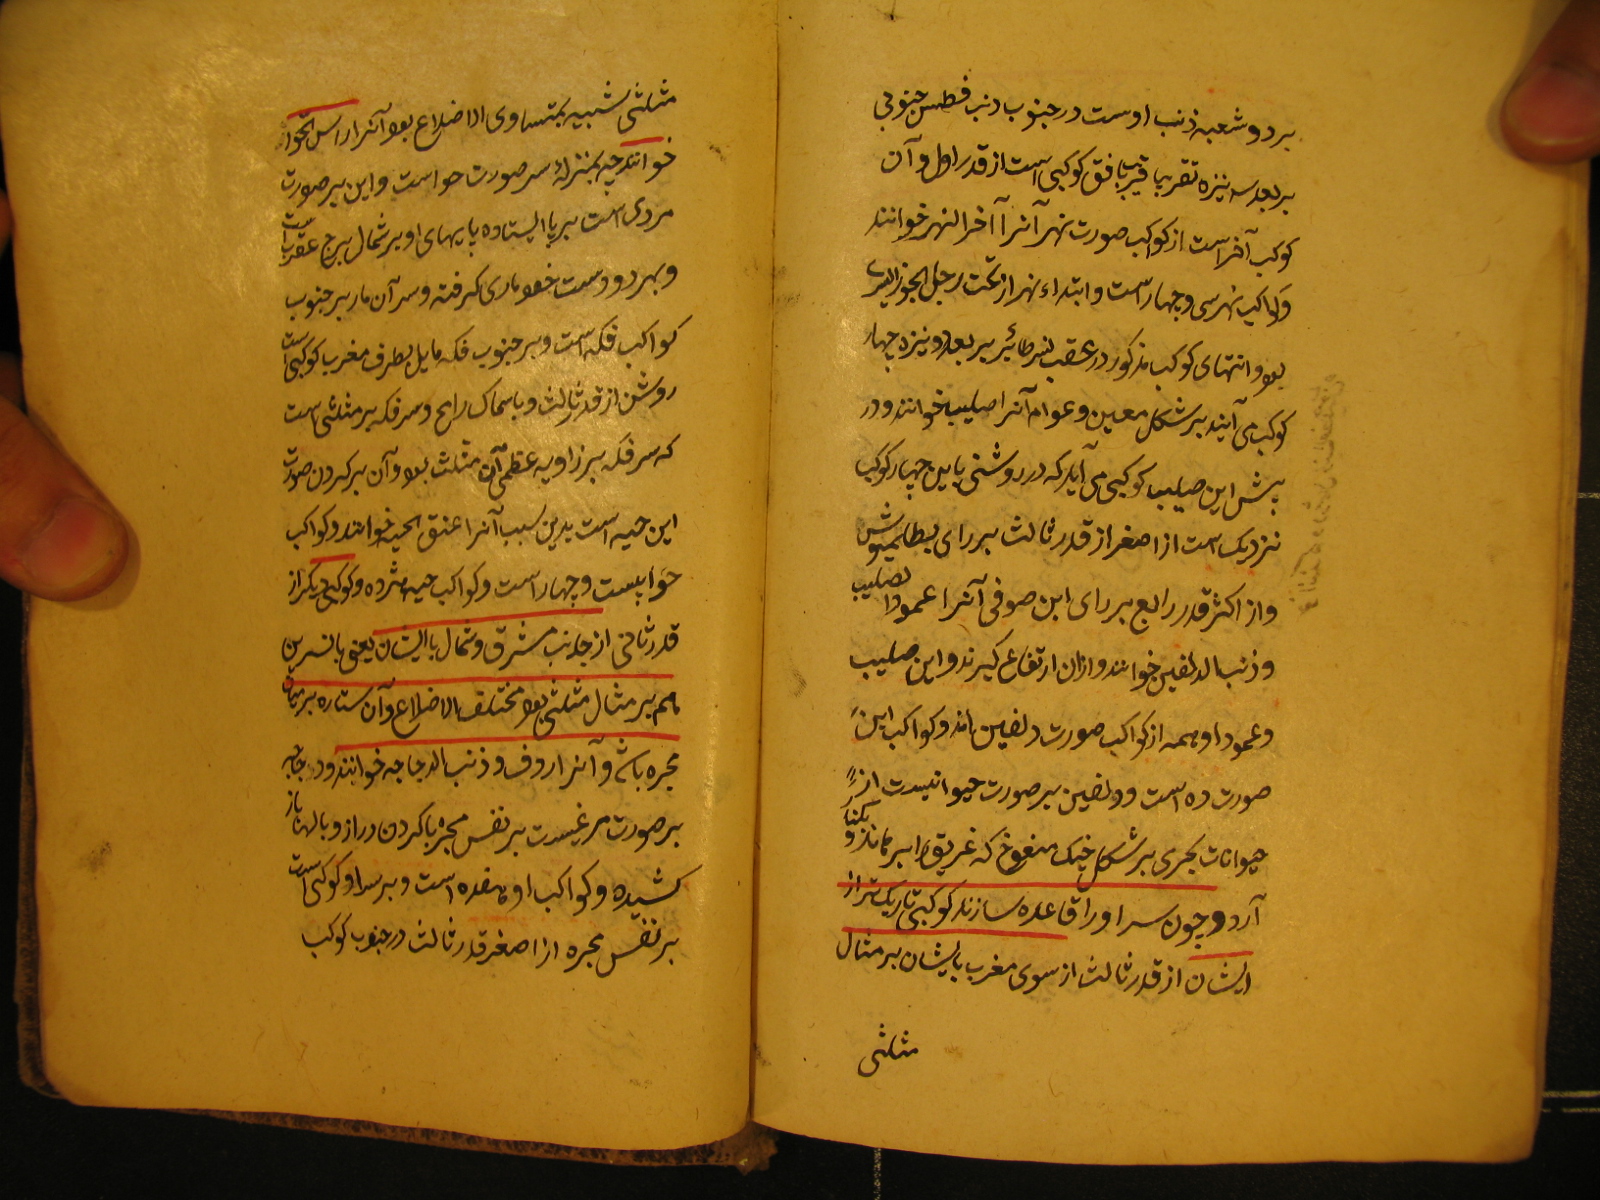 بر دو شعبه ذنب اوست در جنوب ذنب قطس جنوبی
بر بعد سه نیزه تقریب قریب بافق کوکبی است از قدر اول و آن
کوکب آخر است از کواکب صورت نهر آنرا آخر النهر خوانند
و کواکب نهر سی و چهار است و ابتداء نهر از تحت رجل الجوزا الیسری
بود و انتهای کوکب مذکور در عقب نسر طائر بر بعد دو نیزه چهار
کوکب می آیند بر شکل معین و عوام آنرا صلیب خوانند و در
پیش این صلیب کوکبی می آید که در روشنی باین چهار کوکب
نزدیک است از اصغر از قدر ثالث بر رای بطلمیوش
و از اکثر قدر رابع بر رای ابن صوفی آنرا عمود الصلیب
و ذنب الدلفین خوانند و ازان ارتفاع گیرند و این صلیب
و عمود او همه از کواکب صورت دلفین اند و کواکب این
صورت ده است و دلفین بر صورت حیوانیست از
حیوانات بحری بر شکل خیک منفوخ که غریق را بر کنار
آرد و چون سر او را قاعده سازند کوکبی تاریک تر از
ایشان از قدر ثالث از سوی مغرب بایشان بر مثال
مثلثی
مثلثی شبیه بمتساوی الاضلاع بود آنرا راس الحوا
خوانند چه بمنزله سر صورت حوا است و این بر صورت
مردی است بر پا ایستاده پایهای او بر شمال برج عقرب است
و بهر دو دست خود ماری گرفته و سر آن مار بر جنوب
کواکب فکه است و بر جنوب فکه مایل بطرف مغرب کوکبی است
روشن از قدر ثالث و با سماک رامح و سر فکه بر مثلثی است
که سر فکه بر زاویه عظمی آن مثلث بود و آن بر کردن صورت
این حیه است بدین سبب آنرا عنق الحیه خوانند و کواکب
حوا بیست و چهار است و کواکب حیه هژده و کوکبی دیگر از
قدر ثانی از جانب مشرق و شمال با ایشان یعنی با نسرین
هم بر مثال مثلثی بود مختلف الاضلاع و آن ستاره بر میان
مجره باشد و آنرا ردف و ذنب الدجاجه خوانند و دجاجه
بر صورت مرغیست بر نفس مجره با کردن دراز و بالها باز
کشیده و کواکب او هفده است و بر سر او کوکبی است
بر نفس مجره از اصغر قدر ثالث در جنوب کوکب